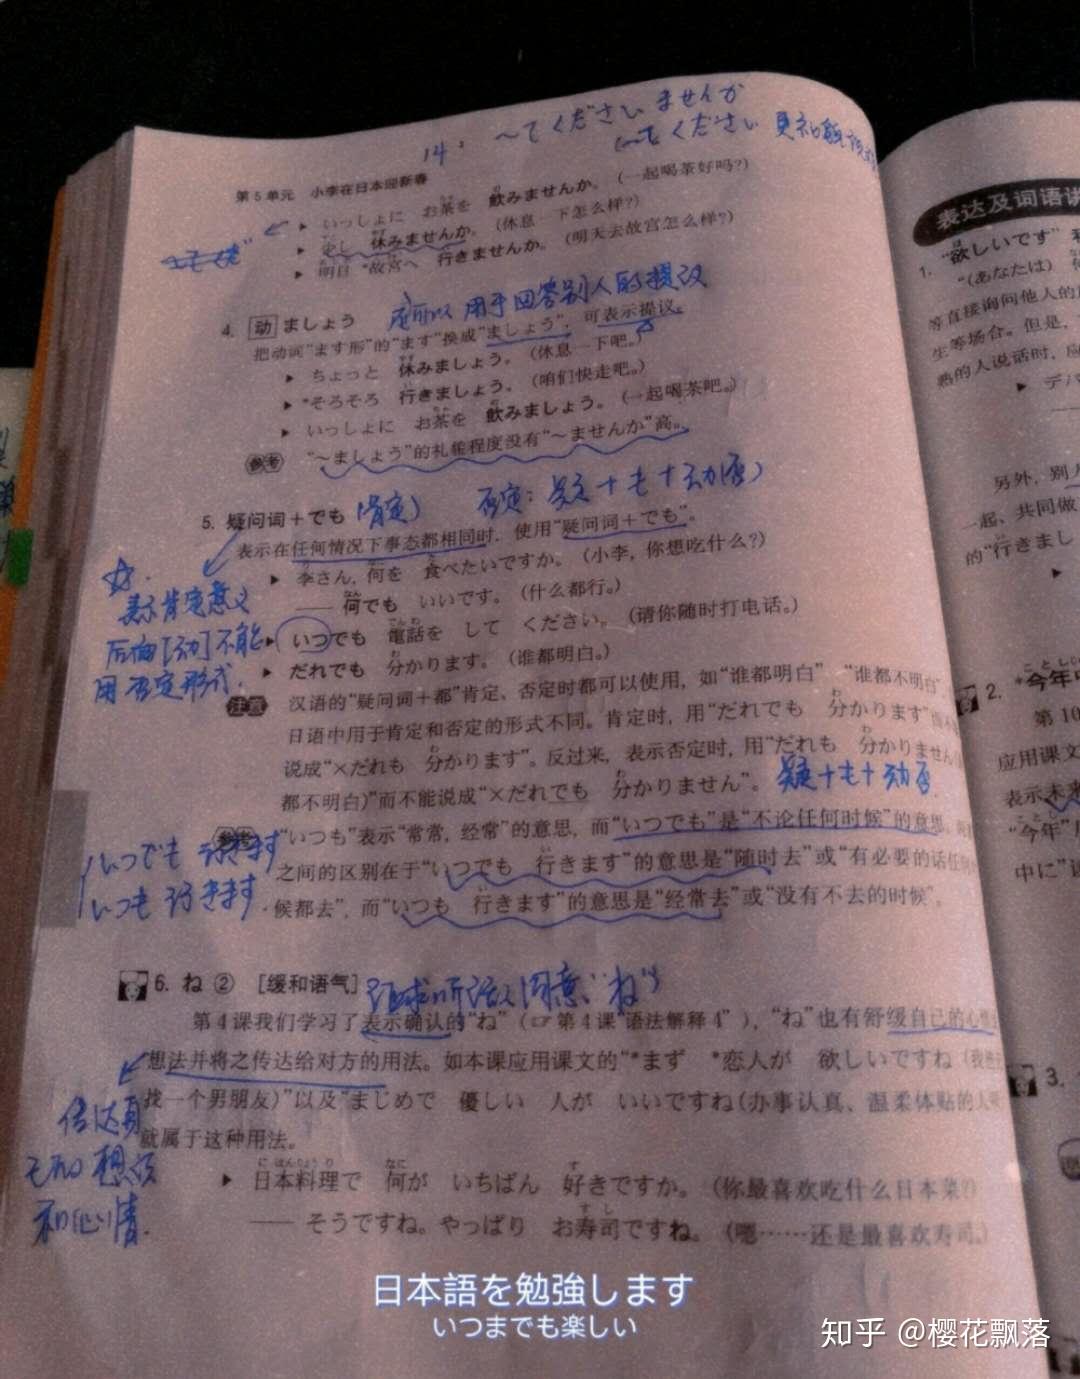 14: ～てくださいませんか
～てください 更礼貌
第5单元 小李在日本迎新春
▶ いっしょに お茶を 飲みませんか。(一起喝茶好吗?)
▶ 少し 休みませんか。(休息一下怎么样?)
▶ 明日 *故宫へ 行きませんか。(明天去故宫怎么样?)
还可以用于回答别人的提议
4. 动 ましょう
把动词"ます形"的"ます"换成"ましょう"，可表示提议。
▶ ちょっと 休みましょう。(休息一下吧。)
▶ *そろそろ 行きましょう。(咱们快走吧。)
▶ いっしょに お茶を 飲みましょう。(一起喝茶吧。)
参考 "～ましょう"的礼貌程度没有"～ませんか"高。
5. 疑问词＋でも (肯定) 否定：疑＋も＋动(否)
表示在任何情况下事态都相同时，使用"疑问词＋でも"。
▶ 李さん，何を 食べたいですか。(小李，你想吃什么?)
—— 何でも いいです。(什么都行。)
▶ いつでも 電話を して ください。(请你随时打电话。)
▶ だれでも 分かります。(谁都明白。)
表示肯定意义
后面[动]不能
用否定形式.
注意 汉语的"疑问词＋都"肯定、否定时都可以使用，如"谁都明白""谁都不明白"
日语中用于肯定和否定的形式不同。肯定时，用"だれでも 分かります"
说成"×だれも 分かります"。反过来，表示否定时，用"だれも 分かりません
都不明白)"而不能说成"×だれでも 分かりません"。 疑＋も＋动否
参考 "いつも"表示"常常，经常"的意思，而"いつでも"是"不论任何时候"的意思
之间的区别在于"いつでも 行きます"的意思是"随时去"或"有必要的话任何
候都去"，而"いつも 行きます"的意思是"经常去"或"没有不去的时候"。
いつでも 行きます
いつも 行きます
6. ね ② [缓和语气] 征求听话人同意"ね"
第4课我们学习了表示确认的"ね"(☞第4课"语法解释4")，"ね"也有舒缓自己的心情
想法并将之传达给对方的用法。如本课应用课文的"*まず *恋人が 欲しいですね(我想
找一个男朋友)"以及"まじめで 優しい 人が いいですね(办事认真、温柔体贴的人
就属于这种用法。
传达自
己的想法
和心情.
▶ 日本料理で 何が いちばん 好きですか。(你最喜欢吃什么日本菜?)
—— そうですね。やっぱり お寿司ですね。(嗯……还是最喜欢寿司。)
表达及词语讲
1. "欲しいです"
"(あなたは)
等直接询问他人的
生等场合。但是，
熟的人说话时，应
▶ デパ
另外，别
一起、共同做
的"行きまし
2. "今年中
第10
应用课文
表示未来
"今年"
中に"
3.
日本語を勉強します
いつまでも楽しい
知乎 @樱花飘落